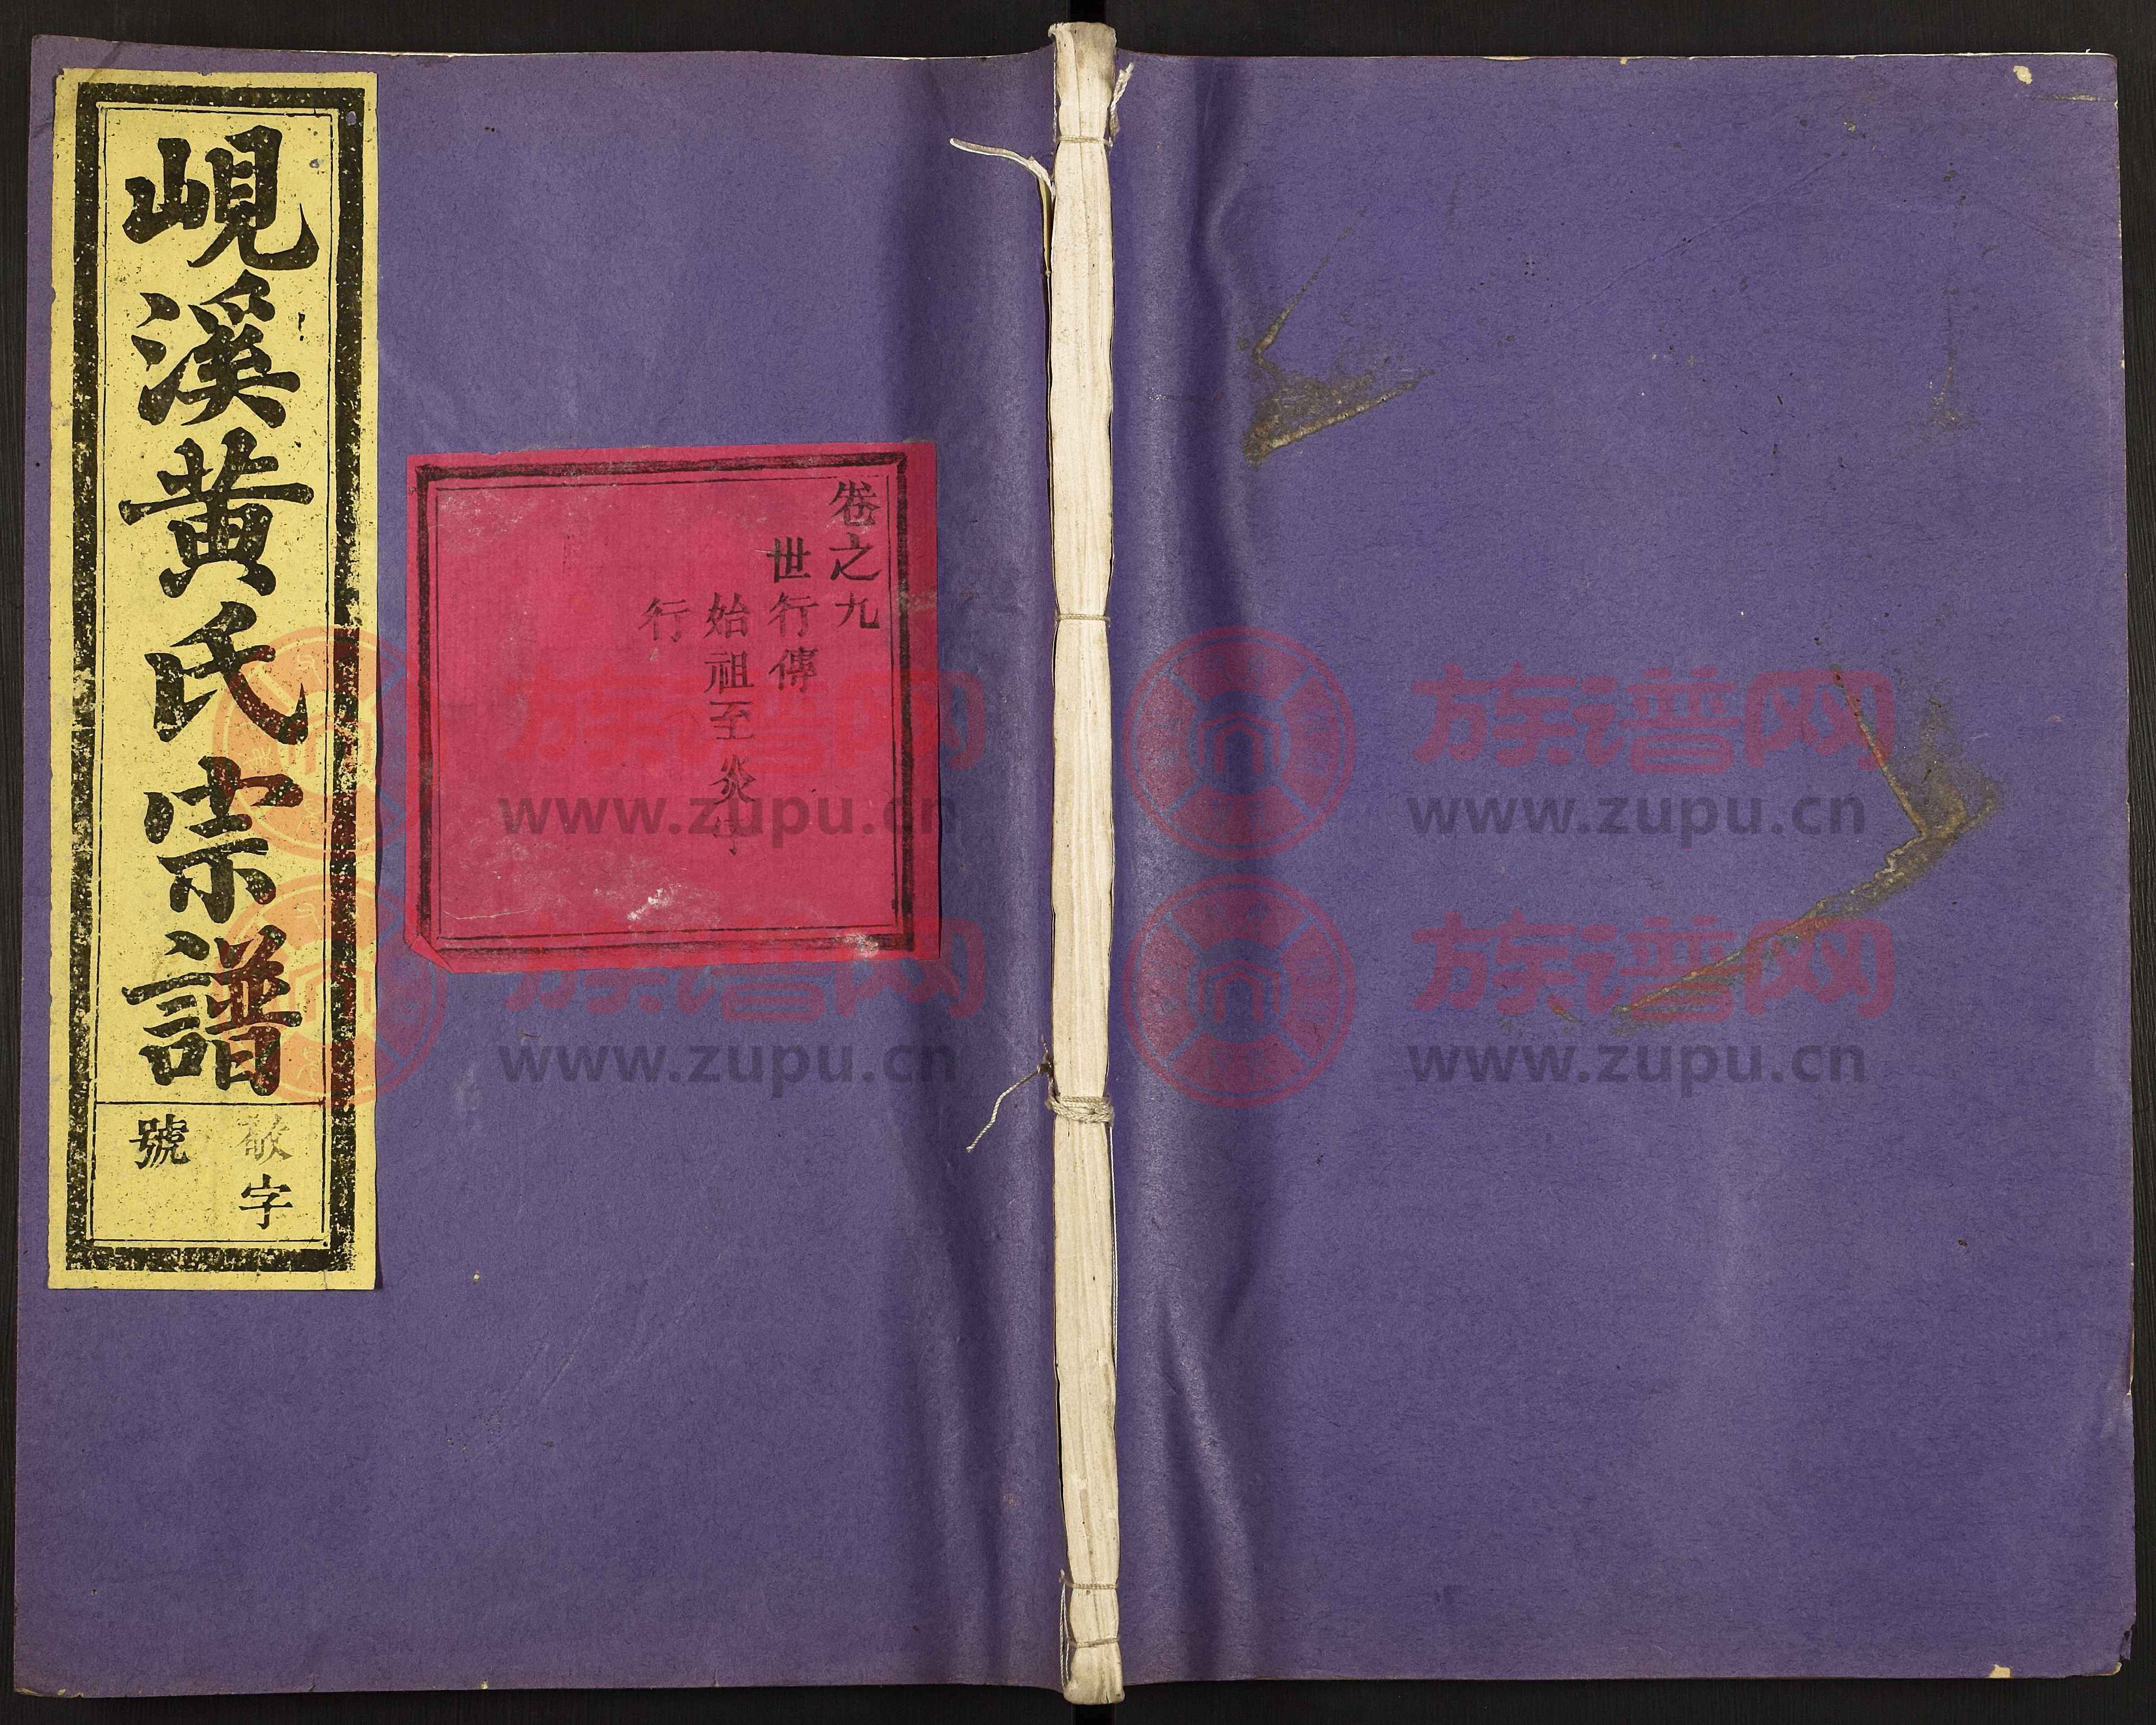 峴溪黄氏宗譜
敬字
號
卷之九
世行傳
始祖至炎字
行
族谱网
www.zupu.cn
族谱网
www.zupu.cn
族谱网
www.zupu.cn
族谱网
www.zupu.cn